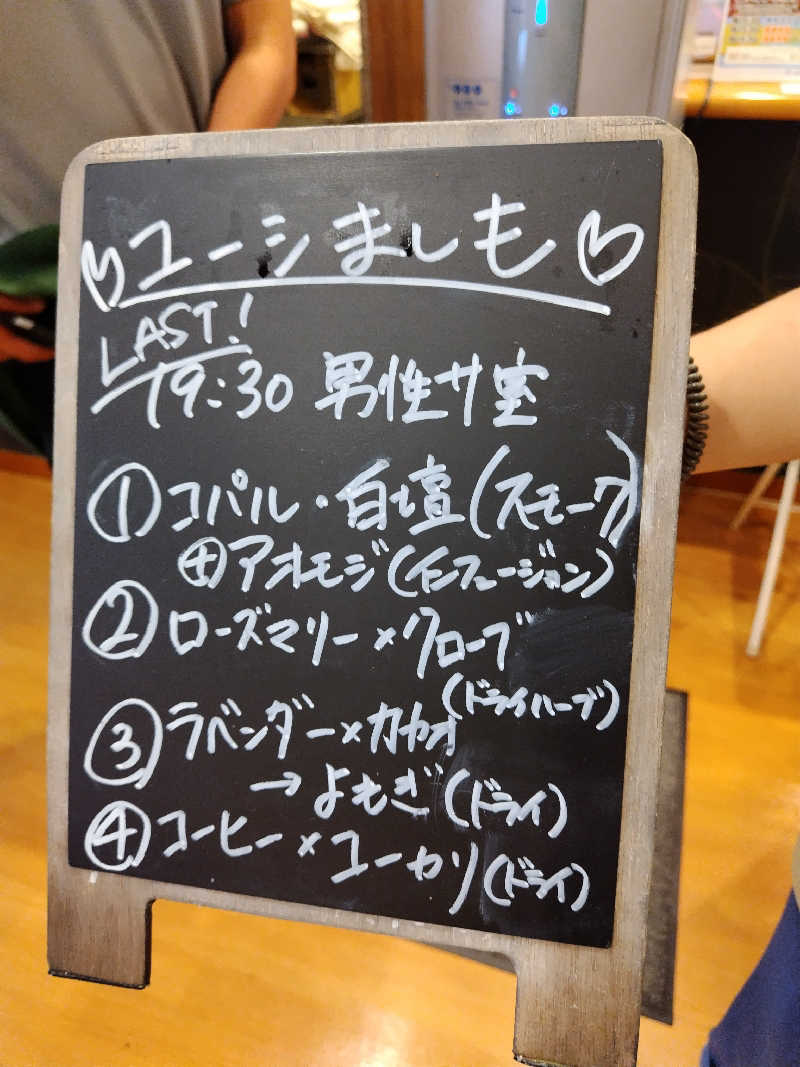 ♡ユーシましも♡
LAST!
19:30 男性サ室
① コパル・白壇(スモーク)
⊕アオモジ(インフュージョン)
② ローズマリー×クローブ
(ドライハーブ)
③ ラベンダー×カカオ
→よもぎ(ドライ)
④ コーヒー×ユーカリ(ドライ)